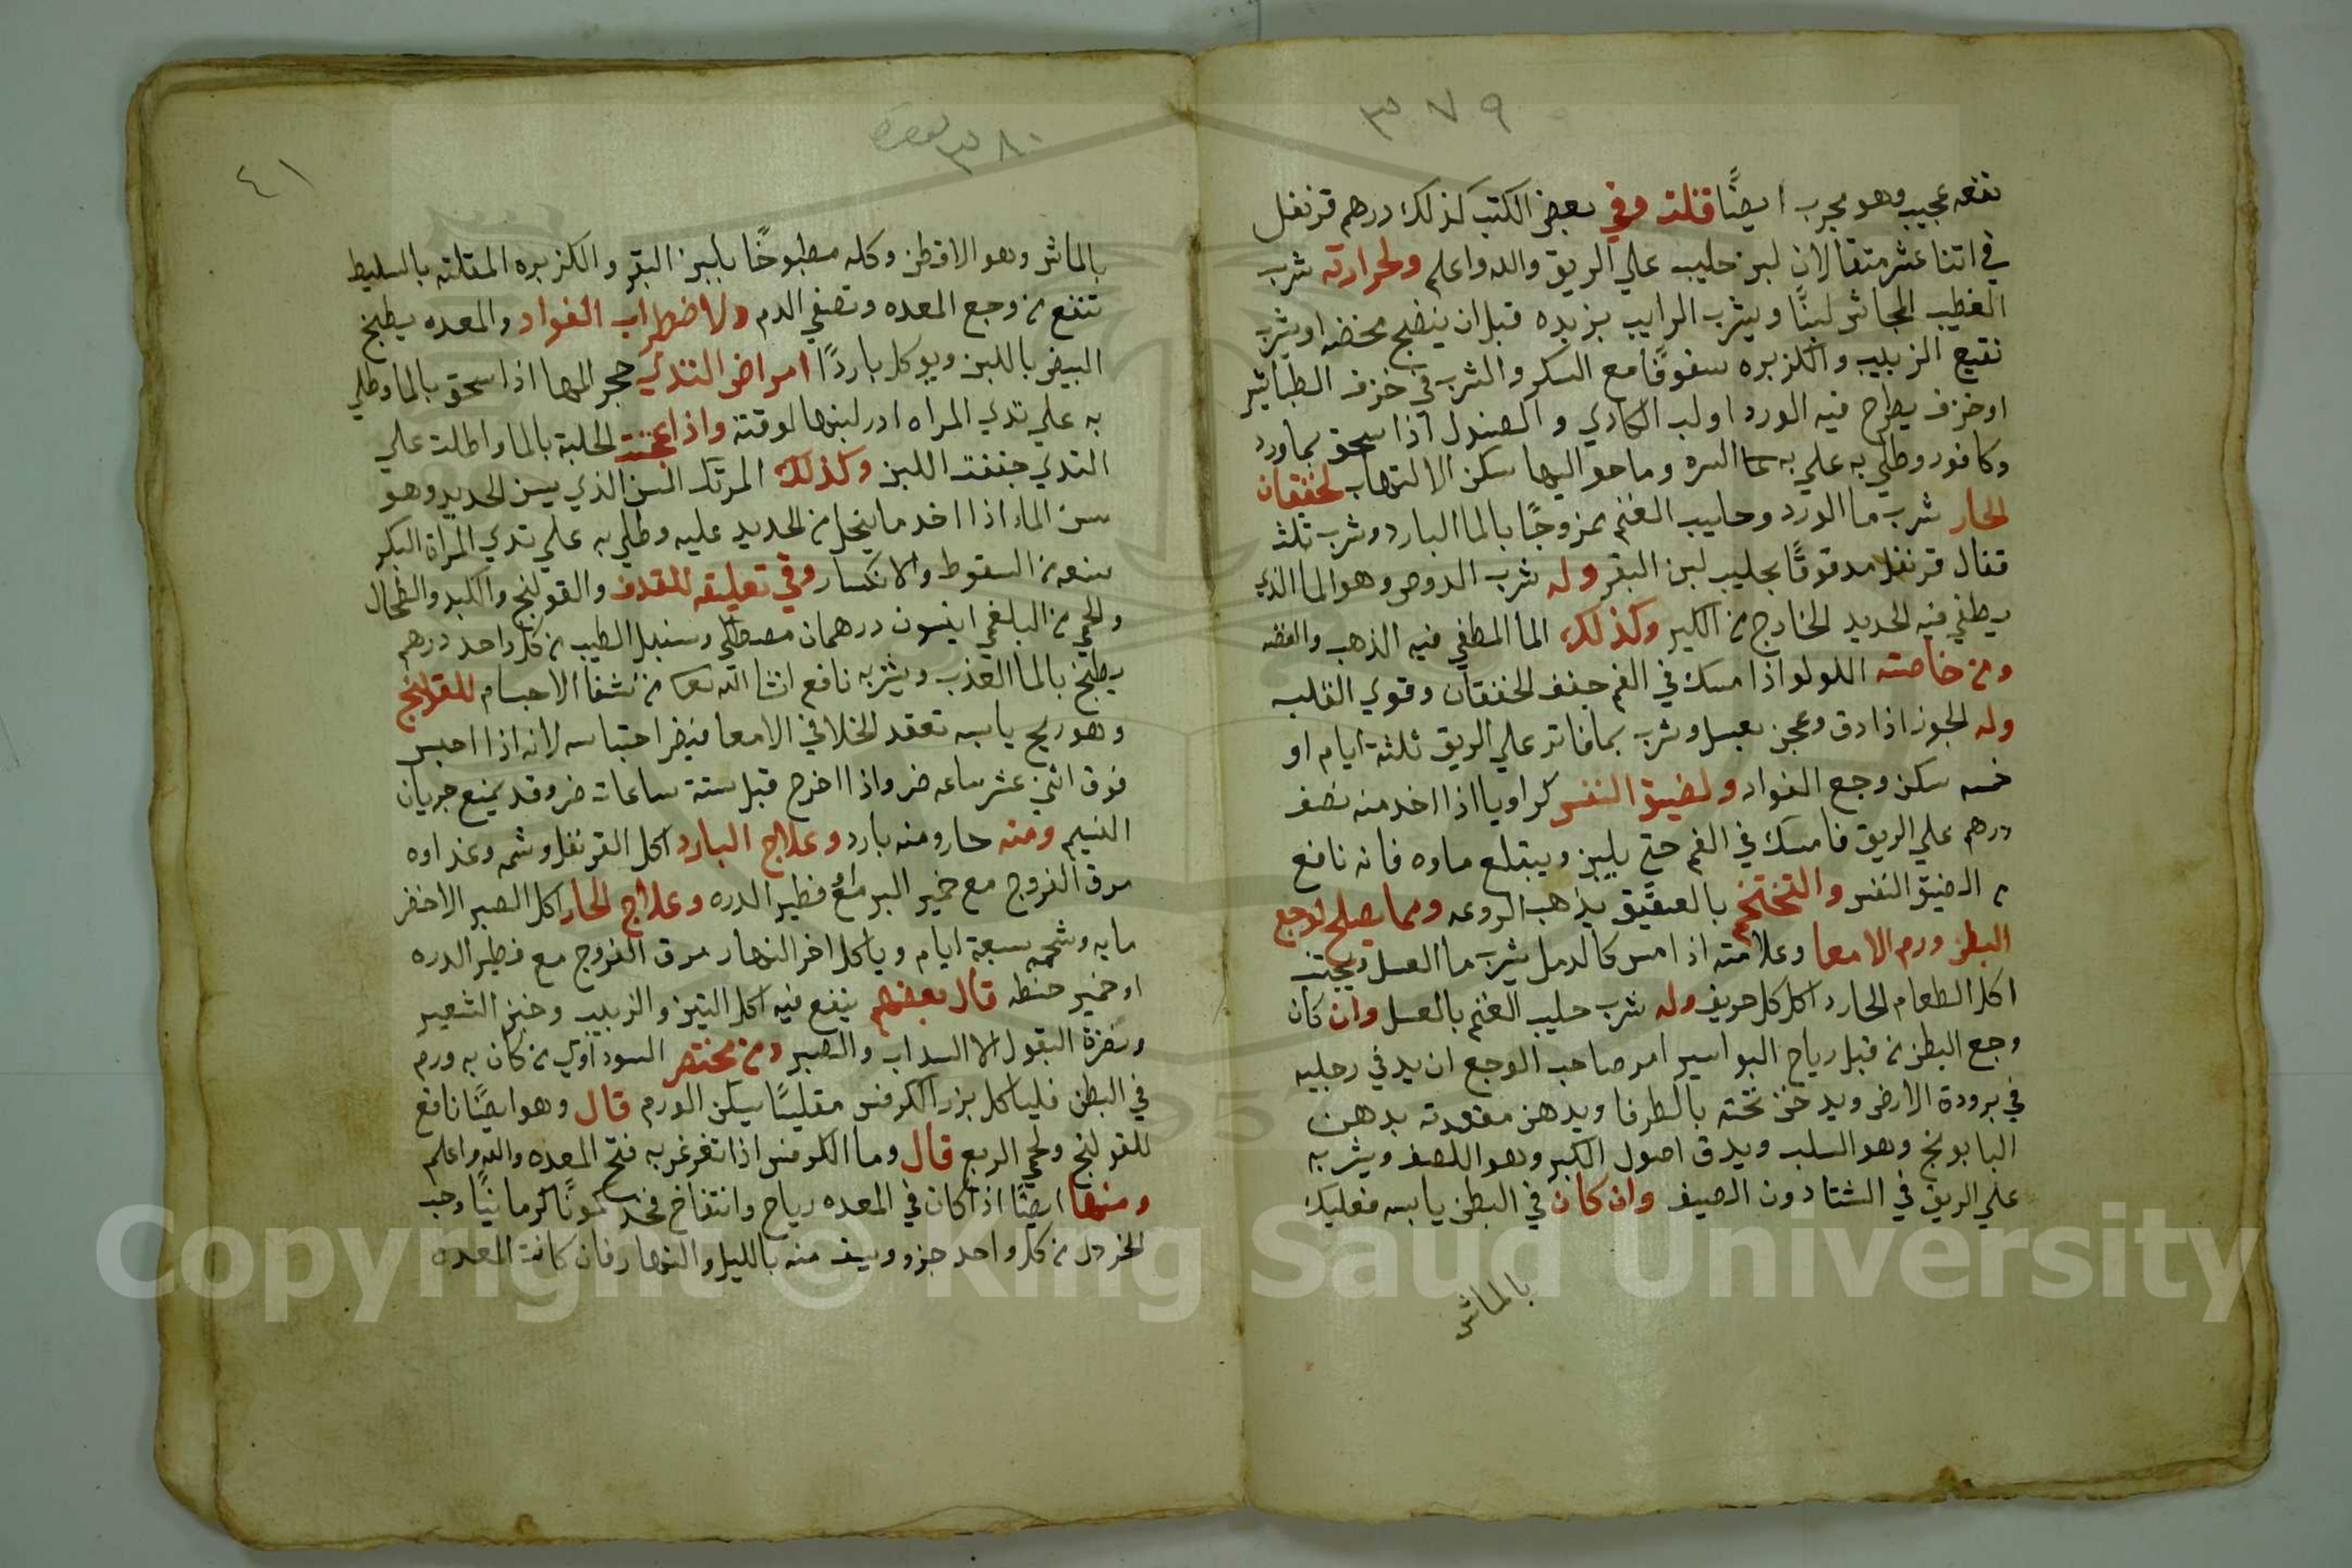 ٣٧٩
نفعه عجيب وهو مجرب ايضًا قلت وفي بعض الكتب كذلك درهم قرنفل
في اثنا عشر مثقالا لبن حليب علي الريق والله واعلم ولحرارته شرب
القطيب الجاثر لبنًا ويشرب الرايب بزبده قبل ان ينضج مخضه او يشرب
نقيع الزبيب والكزبره سفوفًا مع السكر والشرب في خزف الطباشير
او خزف يطرح فيه الورد او لب الكادي والصندل اذا سحق بماورد
وكافور وطلي به علي به السره وما حواليها سكن الالتهاب لخفقان
الحار شرب ما الورد وحليب الغنم ممزوجًا بالما البارد وشرب ثلث
قفال قرنفل مدقوقًا بحليب لبن البقر وله شرب الدوص وهو الما الذي
يطفي فيه الحديد الخارج من الكير وكذلك الما المطفي فيه الذهب والفضه
ومن خاصته اللولو اذا مسك في الفم جفف الخفقان وقوي القلب
وله الجوز اذا دق وعجن بعسل وشرب بما فاتر علي الريق ثلثة ايام او
خمسه سكن وجع الفواد ولضيق النفس كراويا اذا اخد منه نصف
درهم علي الريق فامسك في الفم حتي يلين ويبتلع ماوه فانه نافع
من الضيق النفس والتختخم بالعقيق يذهب الروعه ومما يصلح لوجع
البطن ورم الامعا وعلامته اذا مس كالدمل يشرب ما العسل ويجتنب
اكل الطعام الحار د اكل كل حريف وله شرب حليب الغنم بالعسل وان كان
وجع البطن من قبل رياح البواسير امر صاحب الوجع ان يدفي رجليه
في برودة الارض ويدخن تحته بالطرفا ويدهن مقعدته بدهن
البابونج وهو السلب ويدق اصول الكبر وهو اللصف ويشربه
علي الريق في الشتا دون الصيف وان كان في البطن يابسه فعليك
بالماش
٣٨٠
٤١
بالماش وهو الاقطن وكله مطبوخًا بلبن البقر والكزبره المقلته بالسليط
تنفع من وجع المعده وتصفي الدم ولاضطراب الفواد والمعده يطبخ
البيض باللبن ويوكل باردًا امراض الثدي حجر المها اذا سحق بالما وطلي
به علي ثدي المراه ادر لبنها لوقته واذا عجنت الحلبة بالما واطلت علي
الثدي جففت اللبن وكذلك المرتك المسن الذي يسن الحديد وهو
مسن الما اذا اخد ما ينحل من الحديد عليه وطلي به علي ثدي المراة البكر
منعه من السقوط والانكسار وفي تعليقه للمقدف والقولنج والكبد والطحال
والحمي من البلغمي انيسون درهمان مصطكي وسنبل الطيب من كل واحد درهم
يطبخ بالما العذب ويشربه نافع انشا الله تعا من شفا الاجسام للقولنج
وهو ريح يابسه تعقد الخلا في الامعا فيضر احتباسه لانه اذا احبس
فوق اثني عشر ساعه ضر واذا اخرج قبل ستة ساعات ضر وقد يمنع جريان
النسيم ومنه حار ومنه بارد وعلاج البارد اكل القرنفل وشمه وغذاوه
مرق الفروج مع خمير البر مع فطير الدره وعلاج الحار اكل الصبر الاخضر
مايه وشحمه سبعة ايام وياكل اخر النهار مرق الفروج مع فطير الدره
او خمير حنطه قال بعضهم ينفع فيه اكل التين والزبيب وخبز الشعير
ويضرة البقول الا السداب والصبر ومن مختصر السوداوي من كان به ورم
في البطن فلياكل بزر الكرفس مقليًا يسكن الورم قال وهو ايضًا نافع
للقولنج ولحمي الربع قال وما الكرفس اذا تغرغر به فتح المعده والله واعلم
ومنها ايضًا اذا كان في المعده رياح وانتفاخ فخد كمونًا كرمانيًا وحب
الخردل من كل واحد جزو ويسف منه بالليل والنهار فان كانت المعده
Copyright © King Saud University